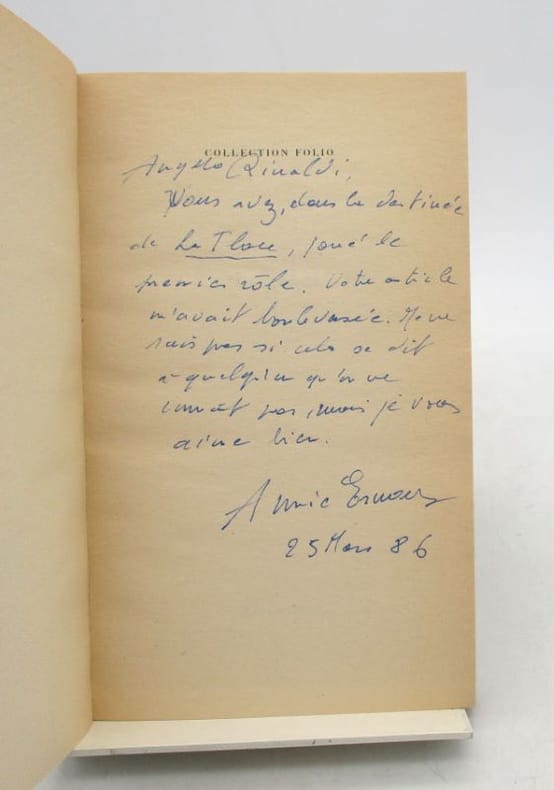 COLLECTION FOLIO
Angelo Rinaldi,
Vous avez, dans la destinée
de La Place, joué le
premier rôle. Votre article
m'avait bouleversée. Je ne
sais pas si cela se dit
à quelqu'un qu'on ne
connaît pas, mais je vous
aime bien.
Annie Ernaux
25 Mars 86